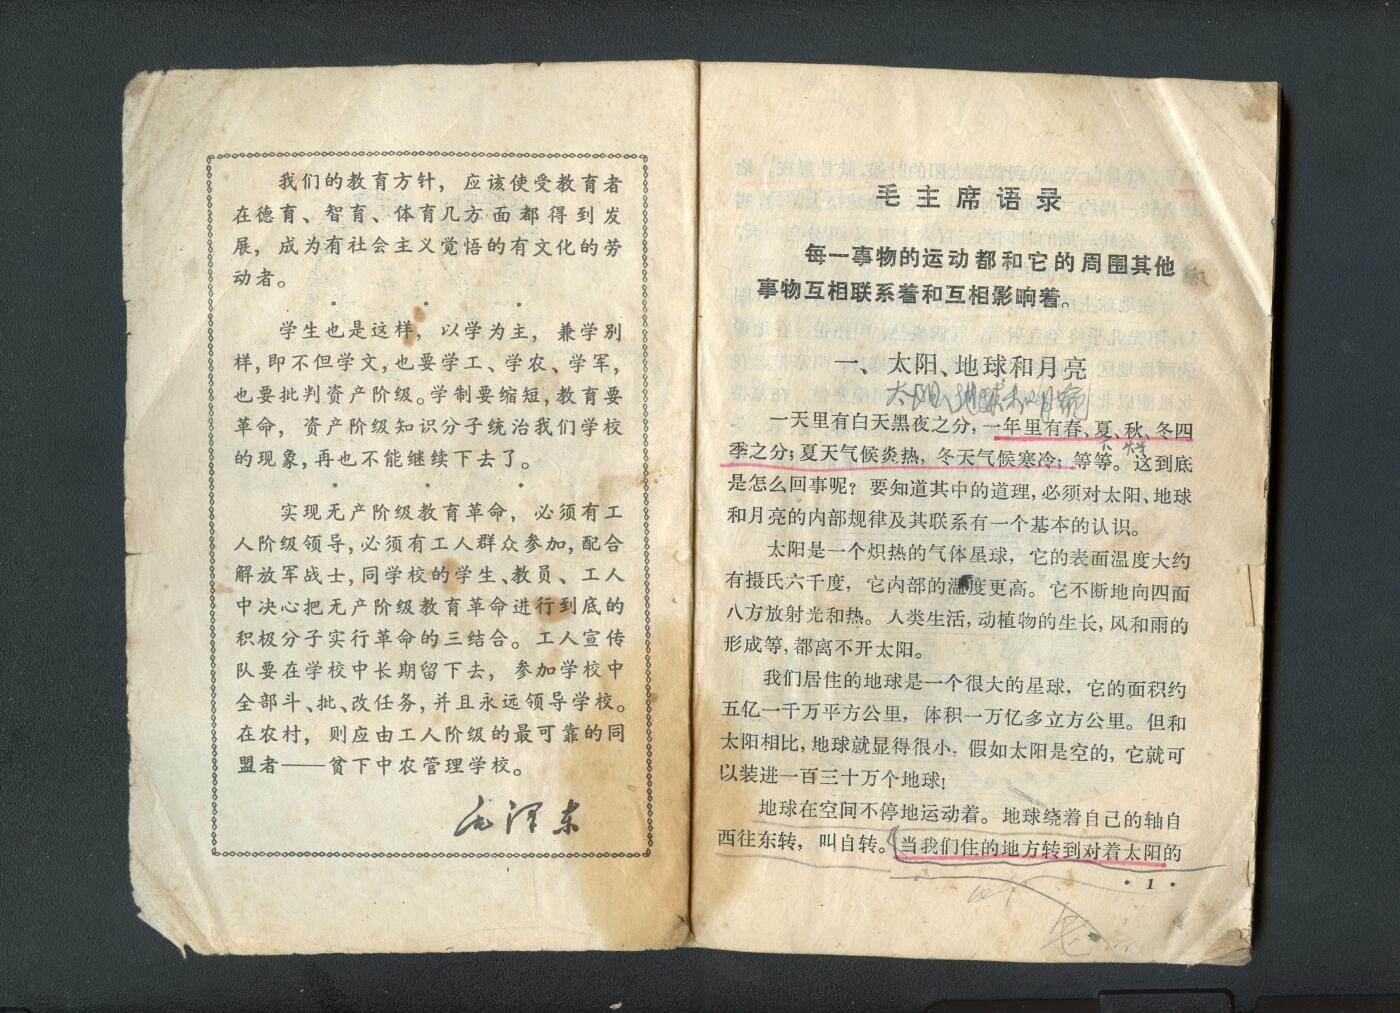 我们的教育方针，应该使受教育者
在德育、智育、体育几方面都得到发
展，成为有社会主义觉悟的有文化的劳
动者。
学生也是这样，以学为主，兼学别
样，即不但学文，也要学工、学农、学军，
也要批判资产阶级。学制要缩短，教育要
革命，资产阶级知识分子统治我们学校
的现象，再也不能继续下去了。
实现无产阶级教育革命，必须有工
人阶级领导，必须有工人群众参加，配合
解放军战士，同学校的学生、教员、工人
中决心把无产阶级教育革命进行到底的
积极分子实行革命的三结合。工人宣传
队要在学校中长期留下去，参加学校中
全部斗、批、改任务，并且永远领导学校。
在农村，则应由工人阶级的最可靠的同
盟者——贫下中农管理学校。
毛泽东
毛主席语录
每一事物的运动都和它的周围其他
事物互相联系着和互相影响着。
一、太阳、地球和月亮
太阳、地球和月亮
一天里有白天黑夜之分，一年里有春、夏、秋、冬四
季之分；夏天气候炎热，冬天气候寒冷；等等。这到底
是怎么回事呢？要知道其中的道理，必须对太阳、地球
和月亮的内部规律及其联系有一个基本的认识。
太阳是一个炽热的气体星球，它的表面温度大约
有摄氏六千度，它内部的温度更高。它不断地向四面
八方放射光和热。人类生活，动植物的生长，风和雨的
形成等，都离不开太阳。
我们居住的地球是一个很大的星球，它的面积约
五亿一千万平方公里，体积一万亿多立方公里。但和
太阳相比，地球就显得很小，假如太阳是空的，它就可
以装进一百三十万个地球！
地球在空间不停地运动着。地球绕着自己的轴自
西往东转，叫自转。当我们住的地方转到对着太阳的
· 1 ·